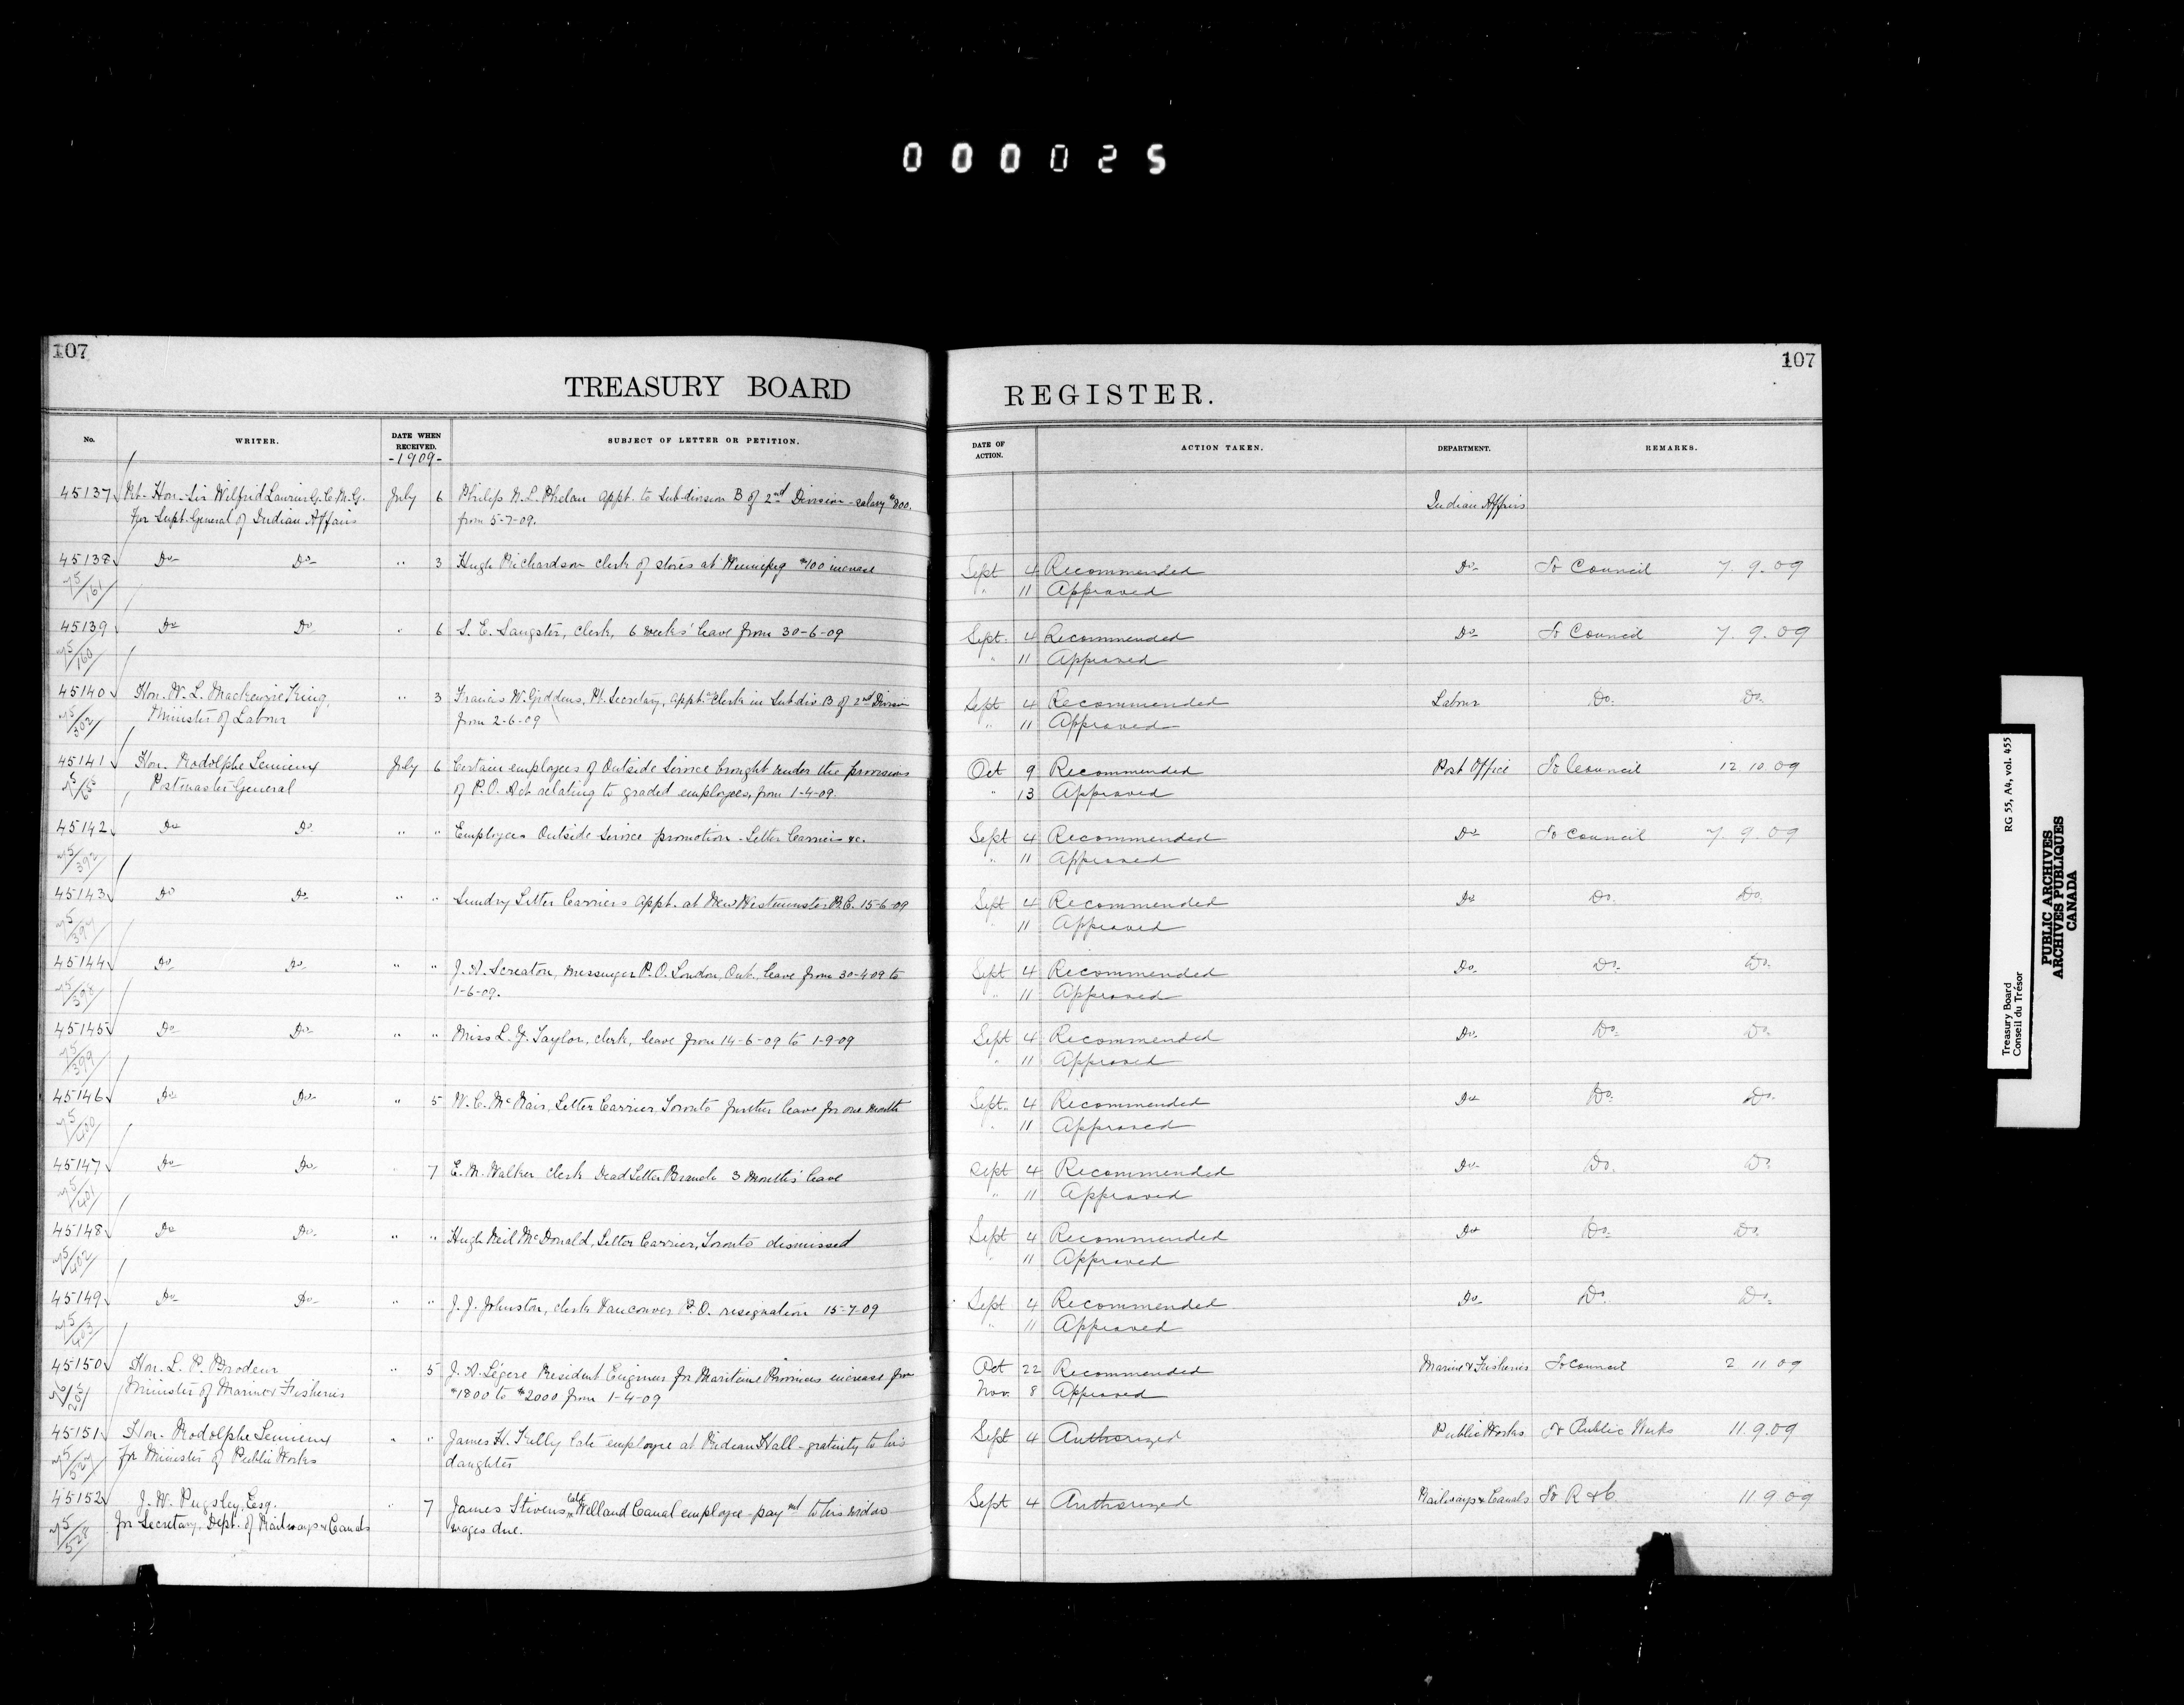 000025
107
TREASURY BOARD
REGISTER.
107
No. WRITER. DATE WHEN RECEIVED. SUBJECT OF LETTER OR PETITION. DATE OF ACTION. ACTION TAKEN. DEPARTMENT. REMARKS.
-1909-
45137 Rt-Hon-Sir Wilfrid Laurier G.C.M.G. July 6 Philip N.L. Phelan appt. to Subdivision B of 2nd Division - salary $800. Indian Affairs
For Supt. General of Indian Affairs from 5-7-09.
45138 Do- Do- " 3 Hugh Richardson clerk of stores at Winnipeg $100 increase Sept 4 Recommended Do- To Council 7.9.09
75/161 " 11 Approved
45139 Do Do " 6 S. E. Sangster, clerk, 6 weeks' leave from 30-6-09 Sept. 4 Recommended Do- To Council 7.9.09
75/160 " 11 Approved
45140 Hon. W. L. Mackenzie King, " 3 Francis W. Giddens, Pt. Secretary, appt. Clerk in Subdiv. B of 2nd Division Sept 4 Recommended Labour Do. Do.
75/302 Minister of Labour from 2-6-09 " 11 Approved
45141 Hon. Rodolphe Lemieux July 6 Certain employees of Outside Service brought under the provisions Oct 9 Recommended Post Office To Council 12.10.09
Postmaster General of P.O. Act relating to graded employees, from 1-4-09. " 13 Approved
45142 Do Do " " Employees Outside Service promotion - Letter Carriers &c. Sept 4 Recommended Do To Council 7.9.09
75/392 " 11 Approved
45143 Do Do " " Sundry Letter Carriers appt. at New Westminster B.C. 15-6-09 Sept 4 Recommended Do Do. Do.
75/394 " 11 Approved
45144 Do Do " " J. A. Screaton, Messenger P.O. London, Ont., leave from 30-4-09 to Sept 4 Recommended Do. Do. Do.
75/398 1-6-09. " 11 Approved
45145 Do Do " " Miss L. J. Taylor, clerk, leave from 14-6-09 to 1-9-09 Sept 4 Recommended Do. Do. Do
75/399 " 11 Approved
45146 Do Do " 5 W. C. McNair, Letter Carrier Toronto further leave for one month Sept. 4 Recommended Do Do. Do.
75/400 " 11 Approved
45147 Do Do " 7 E. M. Walker clerk Dead Letter Branch 3 Months' leave Sept 4 Recommended Do Do. Do.
75/401 " 11 Approved
45148 Do Do " " Hugh Neil McDonald, Letter Carrier, Toronto dismissed Sept 4 Recommended Do Do. Do.
75/402 " 11 Approved
45149 Do Do " " J. J. Johnston, clerk Vancouver P.O. resignation 15-7-09 Sept 4 Recommended Do. Do. Do.
75/403 " 11 Approved
45150 Hon. L. P. Brodeur " 5 J. A. Légère Resident Engineer for Maritime Provinces increase from Oct 22 Recommended Marine & Fisheries To Council 2 11 09
Minister of Marine & Fisheries $1800 to $2000 from 1-4-09 Nov. 8 Approved
45151 Hon. Rodolphe Lemieux " " James H. Kelly late employee at Rideau Hall - gratuity to his Sept 4 Authorized Public Works To Public Works 11.9.09
75/527 for Minister of Public Works daughter
45152 J. W. Pugsley, Esq. " 7 James Stivens, late Welland Canal employee - paymt to his widow Sept 4 Authorized Railways & Canals To R & C. 11 9 09
75/528 for Secretary, Dept. of Railways & Canals wages due.
Treasury Board RG 55, A4, vol. 455
Conseil du Trésor
PUBLIC ARCHIVES
ARCHIVES PUBLIQUES
CANADA